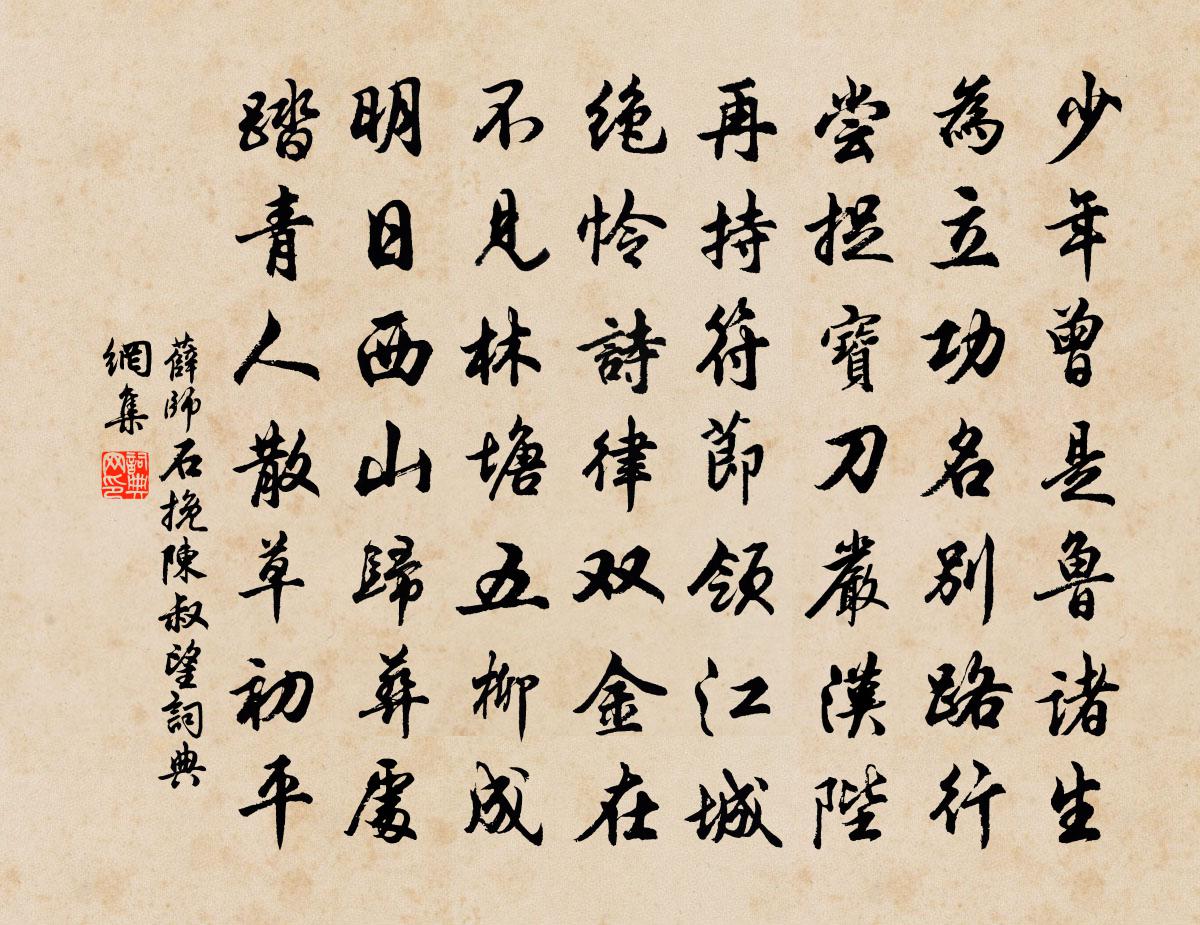 少年曾是魯諸生
為立功名別路行
尝捉寶刀嚴漢陛
再持符節領江城
绝怜詩律双金在
不見林塘五柳成
明日西山歸葬處
踏青人散草初平
薛師石挽陳叔望詞典
網集
詞典網印